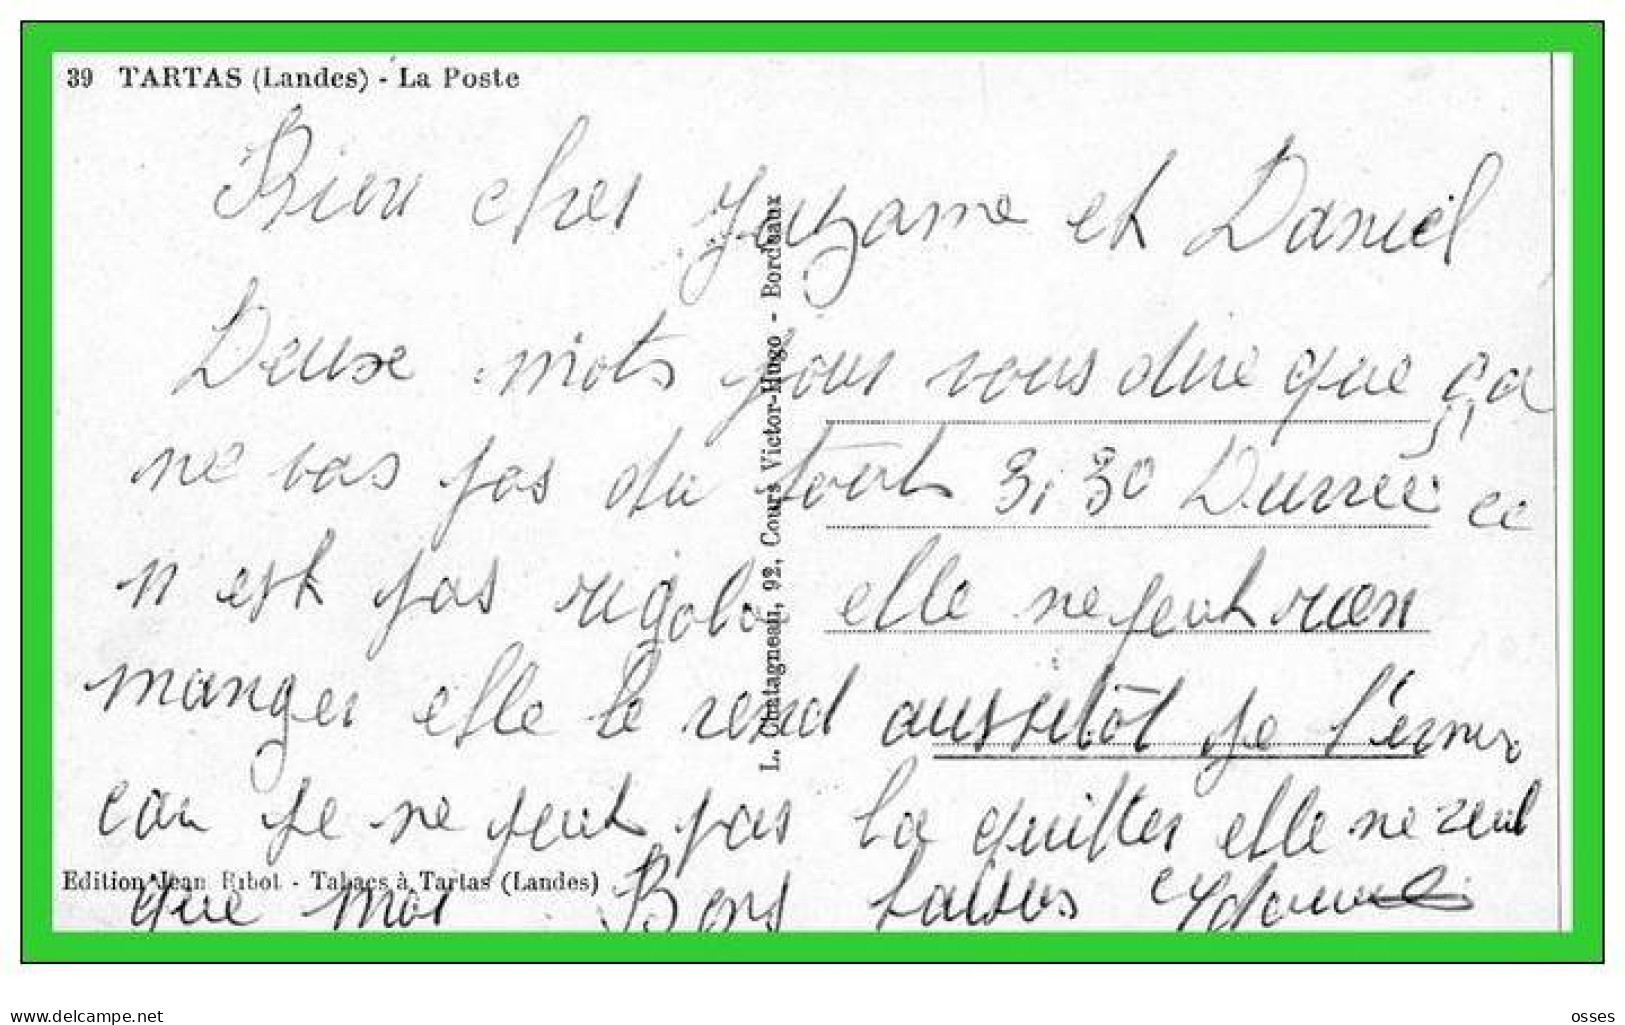 39 TARTAS (Landes) - La Poste
Bien cher Suzanne et Daniel
Deuxe mots pour vous dire que ça
ne vas pas du tout 3,30 Durree si ce
n'est pas rigolo elle ne peut rien
manger elle le rend aussitôt je
car je ne peut pas la quitter elle ne veut
que moi Bons baisers
L. Chatagneau, 92, Cours Victor-Hugo - Bordeaux
Edition Jean Ribot - Tabacs à Tartas (Landes)
www.delcampe.net
osses